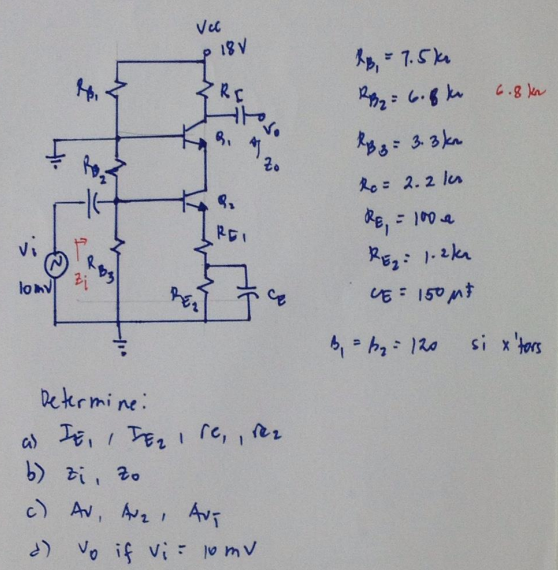 Vcc
18V
RB1
RC
Vo
Zo
Q1
RB2
Q2
RE1
Vi
10mV
Zi
RB3
RE2
CE
RB1 = 7.5 kΩ
RB2 = 6.8 kΩ 6.8 kΩ
RB3 = 3.3 kΩ
Rc = 2.2 kΩ
RE1 = 100 Ω
RE2 = 1.2 kΩ
CE = 150 μf
β1 = β2 = 120 si x'tors
Determine:
a) IE1, IE2, re1, re2
b) Zi, Zo
c) Av1, Av2, AvT
d) Vo if Vi = 10 mV